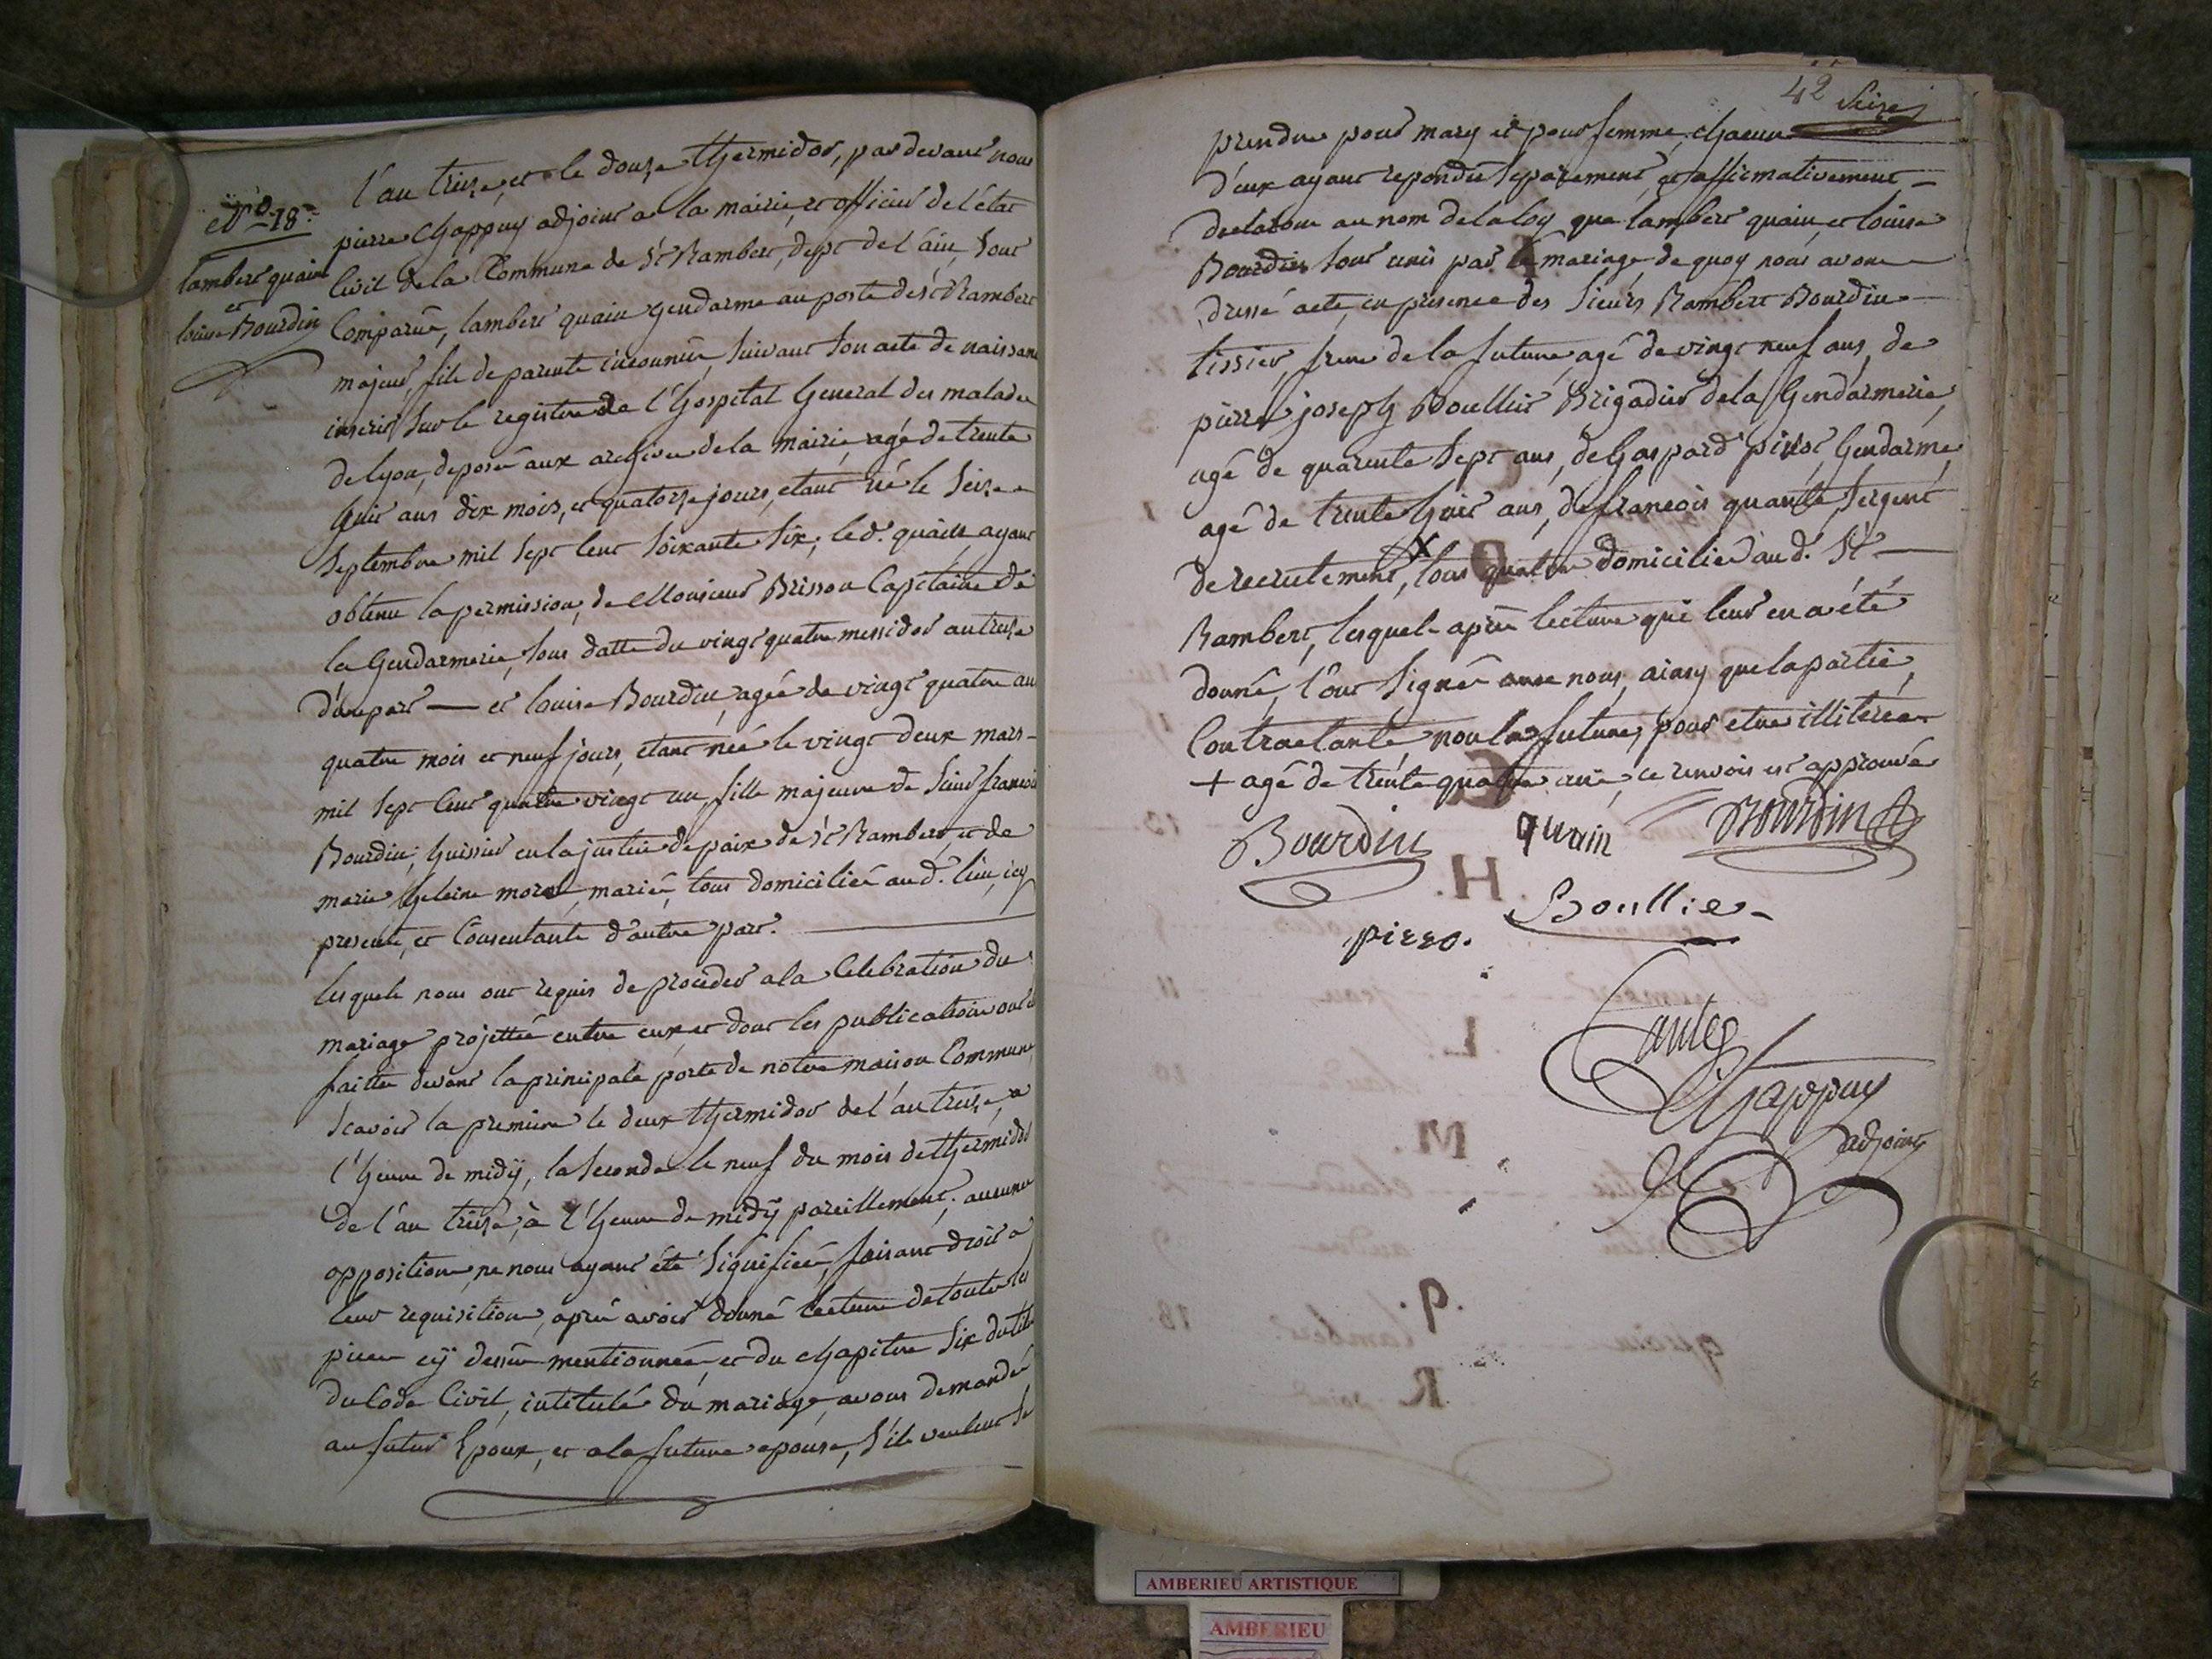 N.º 18.
lambert quain
et
louise Bourdin
l'an treize, et le douze thermidor, par devant nous
pierre Chappuy adjoint a la mairie, et officier de l'état
Civil de la Commune de St Rambert, dept de l'ain, sont
Comparus, lambert quain gendarme au poste de St Rambert
majeur, fils de parents inconnus, suivant son acte de naissance
inscrit sur le registre de l'hospital General des malades
de lyon, deposé aux archives de la mairie, agé de trente
huit ans dix mois, et quatorze jours, etant né le seize
septembre mil sept cent soixante six, led. quain ayant
obtenu la permission, de Monsieur Brisson Capitaine de
la Gendarmerie, sous datte du vingt quatre messidor an treize
d'une part — et louise Bourdin, agée de vingt quatre ans
quatre mois et neuf jours, etant née le vingt deux mars
mil sept cent quatre vingt un, fille majeure de sieur francois
Bourdin, huissier en la justice de paix de St Rambert, et de
marie heleine morel, mariés, tous domiciliés aud. lieu, icy
presents, et Consentants d'autre part.
lesquels nous ont requis de proceder a la Celebration du
mariage projetté entre eux, et dont les publications ont été
faittes devant la principale porte de notre maison Commune
scavoir la premiere le deux thermidor de l'an treize, a
l'heure de midÿ, la seconde le neuf du mois de thermidor
de l'an treize, à l'heure de midÿ pareillement, aucune
opposition ne nous ayant été signifiée, faisant droit a
leur requisition, après avoir donné lecture de toutes les
pieces cÿ dessus mentionnées, et du chapitre six du titre
du Code Civil, intitulé du mariage, avons demandé
au futur Epoux, et a la future epouse, s'ils veulent se
42 Seize
prendre pour mary et pour femme, chacun
d'eux ayant repondu separement, et affirmativement
declarons au nom de la loy que lambert quain et louise
Bourdin sont unis par le mariage, de quoy nous avons
dressé acte, en presence des sieurs Rambert Bourdin
tissier, frere de la future, agé de vingt neuf ans, de
pierre joseph Boullier Brigadier de la Gendarmerie,
agé de quarente sept ans, de Gaspard Gendarme,
agé de trente huit ans, de francois sergent
de recrutement, X tous quatre domiciliés aud. St
Rambert, lesquels après lecture qui leur en a été
donné, l'ont signé avec nous, ainsy que la partie,
Contractante non la future, pour etre illiterée
+ agé de trente quatre ans, ce renvois est approuvé
Bourdin quain Bourdin
Boullier
Chappuy
adjoint